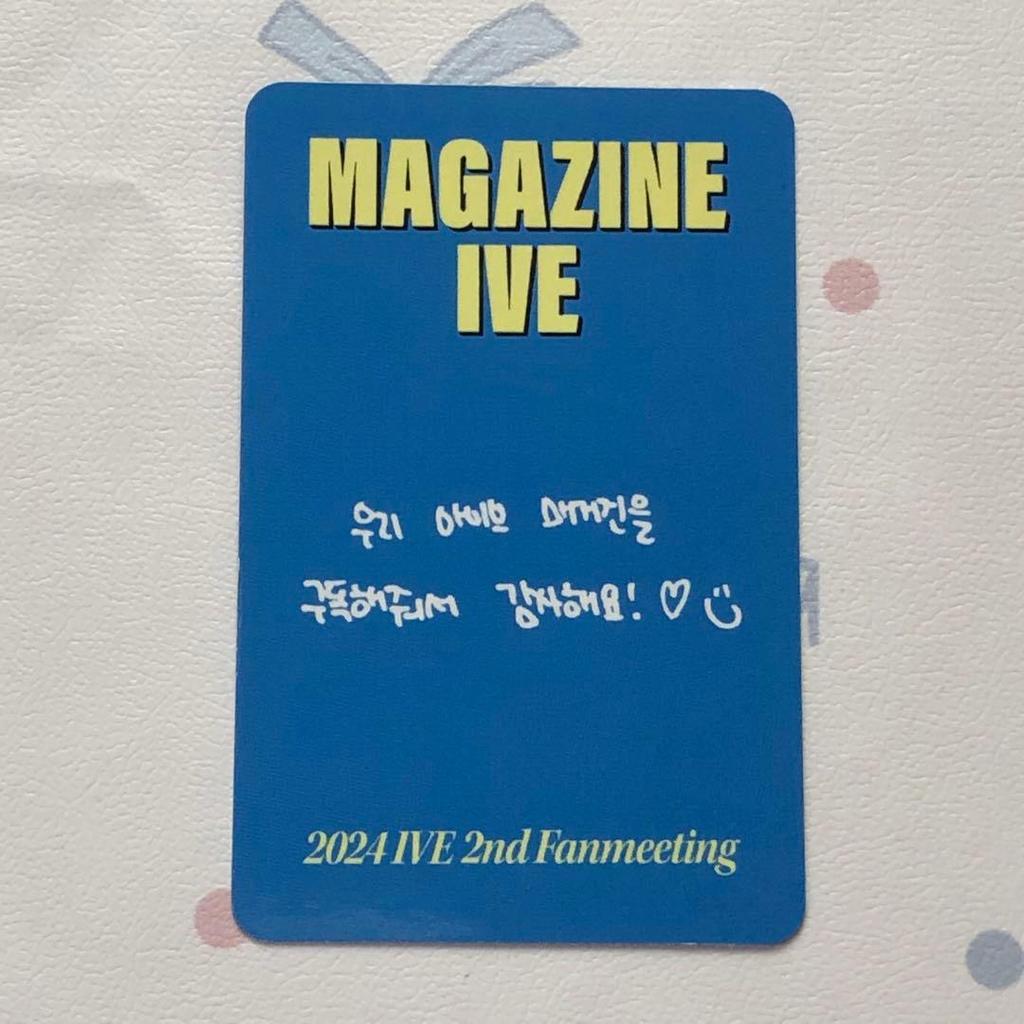 MAGAZINE
IVE
우리 아이브 매거진을
구독해줘서 감사해요! ♡
2024 IVE 2nd Fanmeeting